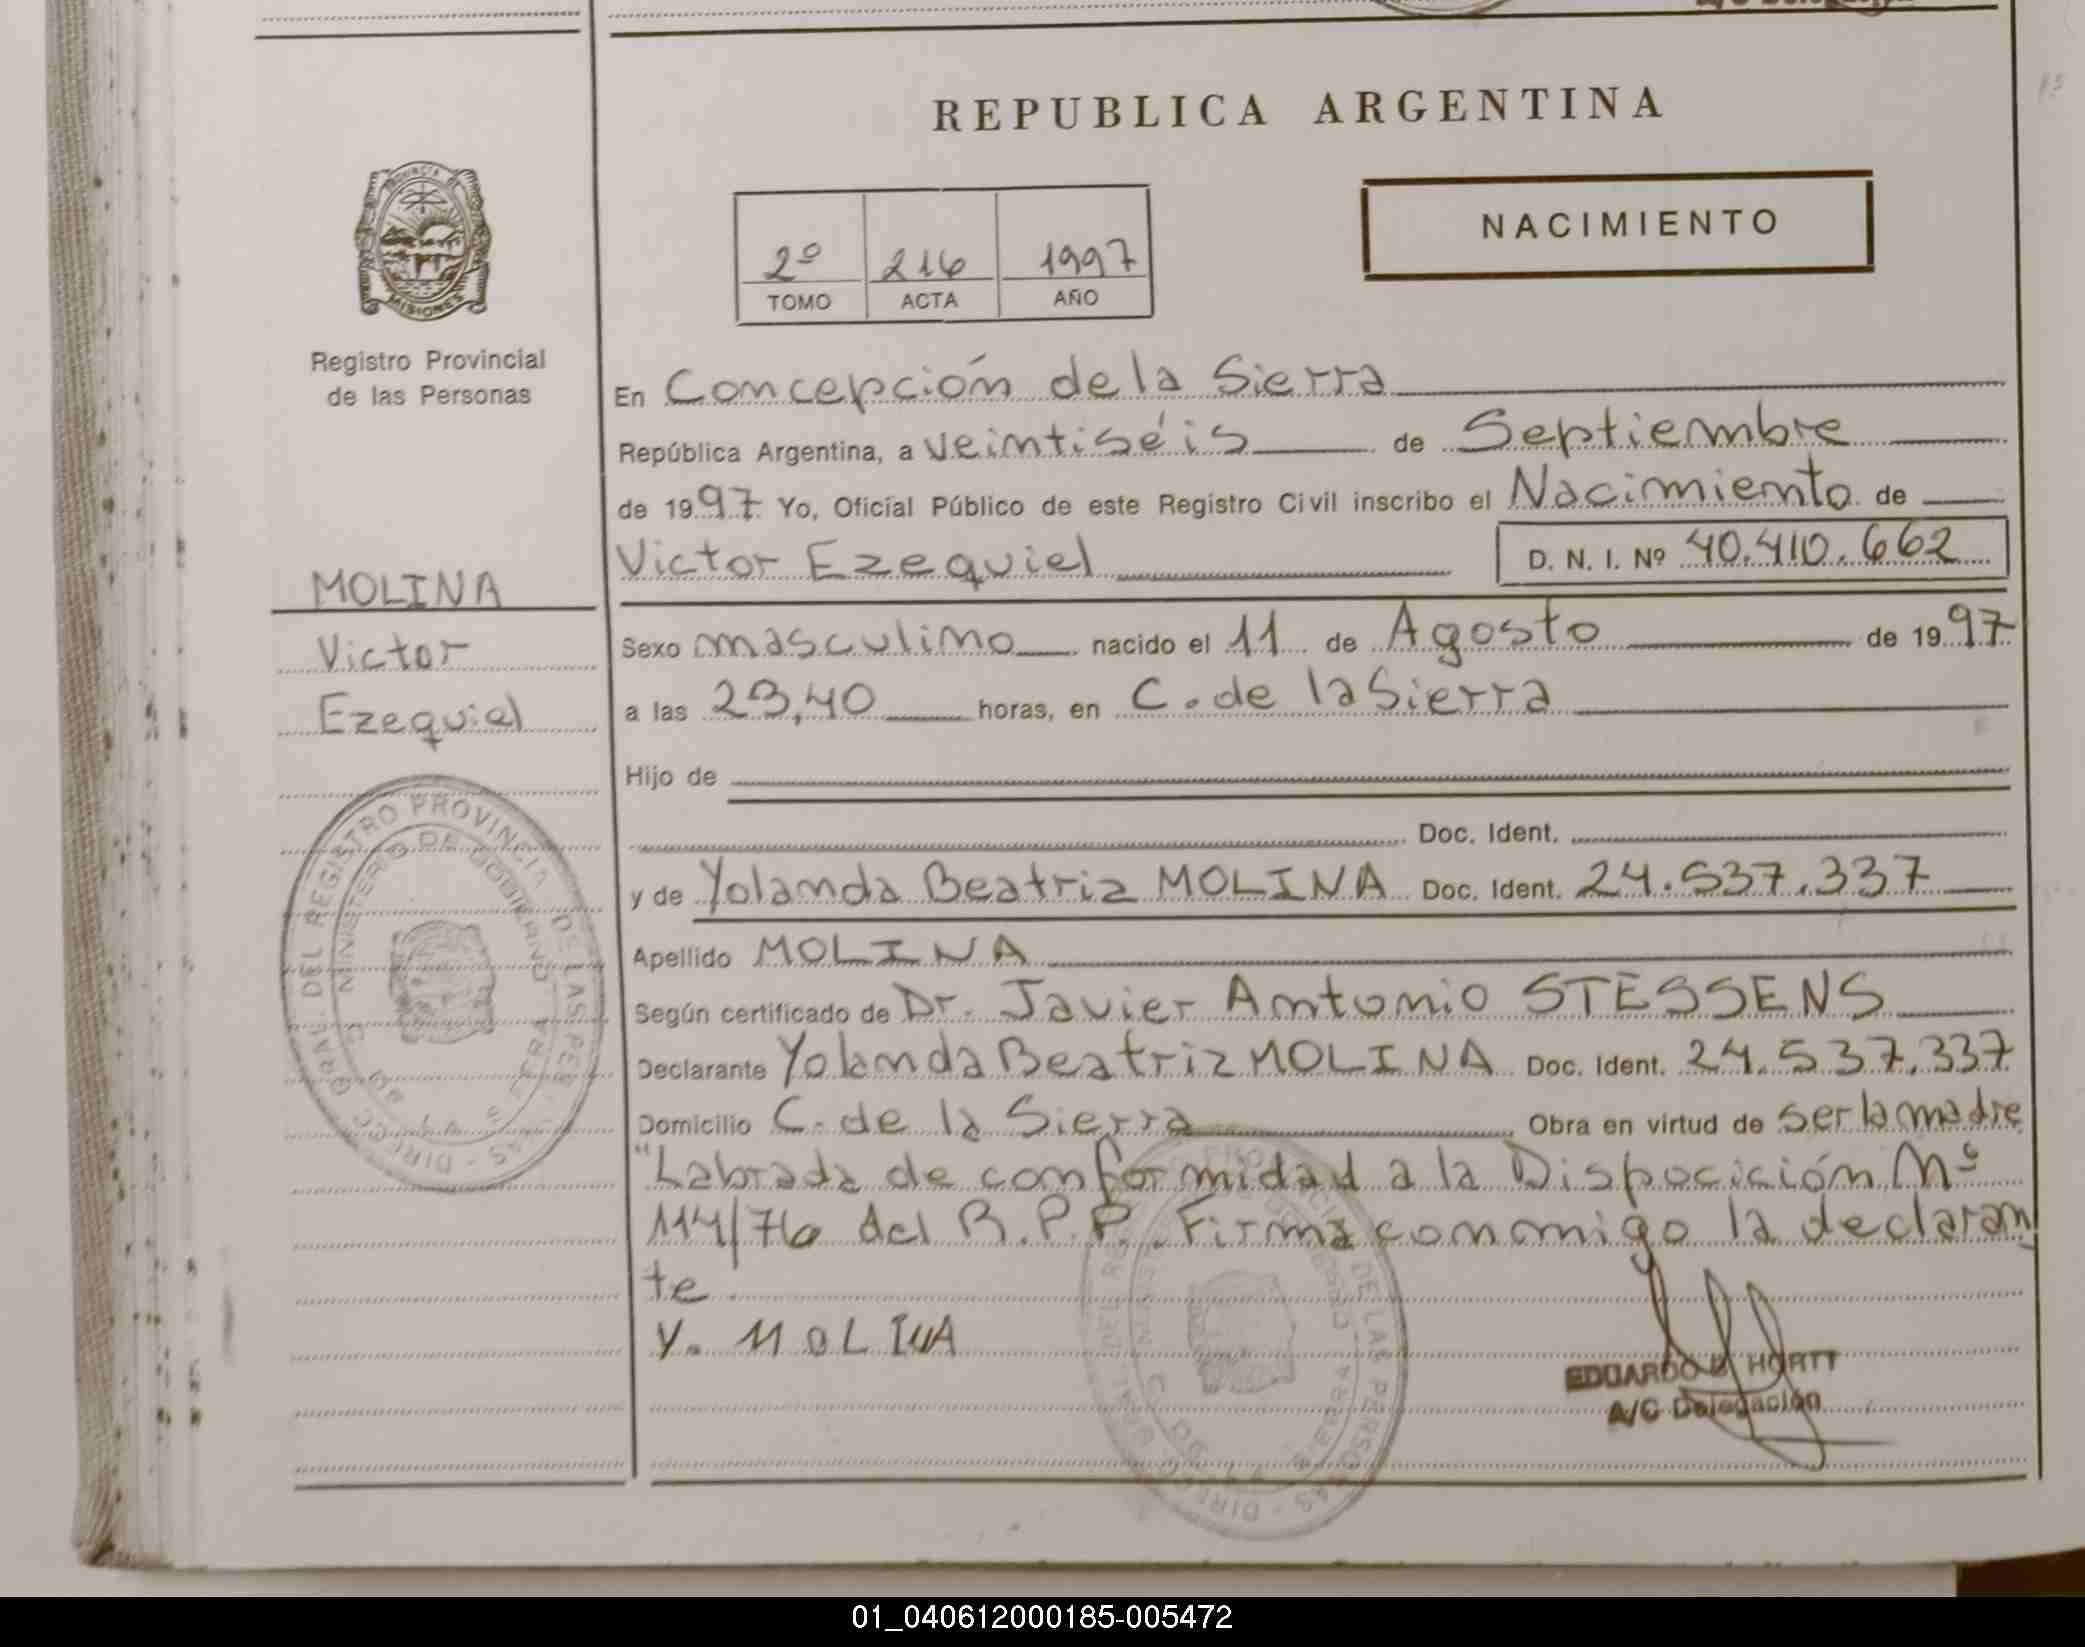 REPUBLICA ARGENTINA
NACIMIENTO
2º 216 1997
TOMO ACTA AÑO
PROVINCIA
MISIONES
Registro Provincial
de las Personas
En Concepción de la Sierra
República Argentina, a veintiséis de Septiembre
de 1997 Yo, Oficial Público de este Registro Civil inscribo el Nacimiento de
Victor Ezequiel D. N. I. Nº 40.410.662
MOLINA
Victor
Ezequiel
Sexo masculino nacido el 11 de Agosto de 1997
a las 23,40 horas, en C. de la Sierra
Hijo de
Doc. Ident.
y de Yolanda Beatriz MOLINA Doc. Ident. 24.537.337
Apellido MOLINA
Según certificado de Dr. Javier Antonio STESSENS
Declarante Yolanda Beatriz MOLINA Doc. Ident. 24.537.337
Domicilio C. de la Sierra Obra en virtud de ser la madre
"Labrada de conformidad a la Disposición Nº
114/76 del R.P.P. Firma conmigo la declaran
te
Y. MOLINA
EDUARDO HORTT
A/C Delegación
GRAL. DEL REGISTRO PROVINCIAL DE LAS PERSONAS - DIREC.
MINISTERIO DE GOBIERNO
01_040612000185-005472